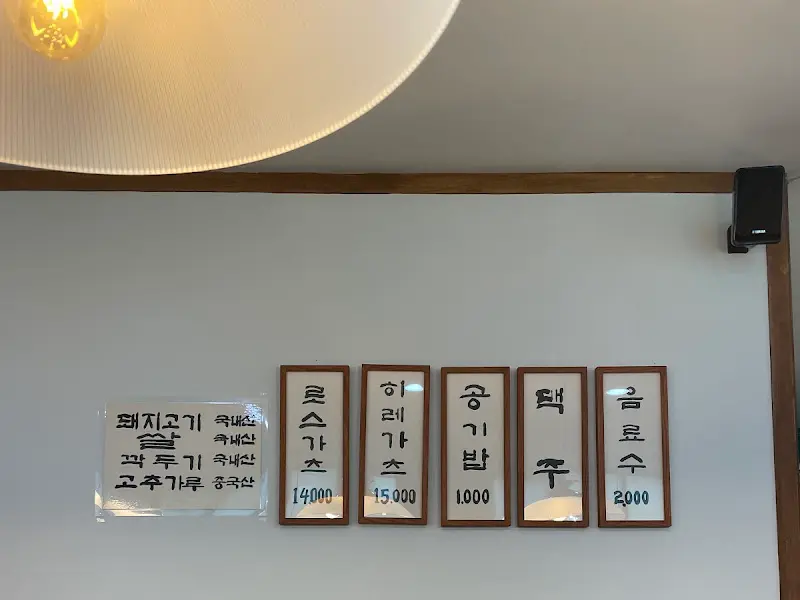 돼지고기 국내산
쌀 국내산
깍두기 국내산
고추가루 중국산
로스가츠
14,000
히레가츠
15,000
공기밥
1,000
택주
음료수
2,000
YAMAHA